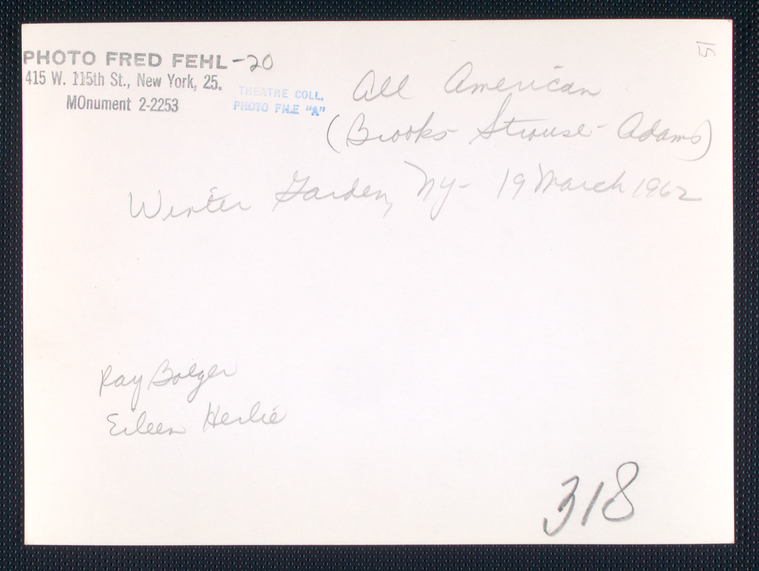 PHOTO FRED FEHL-20
415 W. 115th St., New York, 25.
MOnument 2-2253
THEATRE COLL.
PHOTO FILE "A"
15
All American
(Brooks-Strouse-Adams)
Winter Garden, Ny- 19 March 1962
Ray Bolger
Eileen Herlie
318